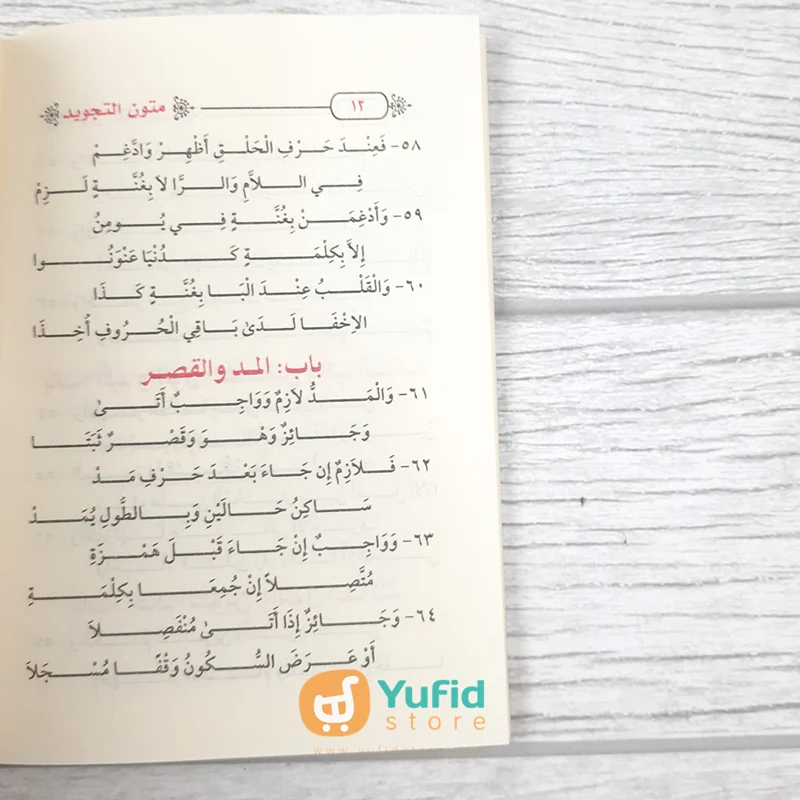 متون التجويد ١٢
٥٨- فَعِنْدَ حَرْفِ الْحَلْقِ أَظْهِرْ وَادَّغِمْ
فِي اللَّامِ وَالرَّا لاَ بِغُنَّةٍ لَزِمْ
٥٩- وَأَدْغِمَنْ بِغُنَّةٍ فِي يُومِنُ
إِلاَّ بِكِلْمَةٍ كَدُنْيَا عَنْوَنُوا
٦٠- وَالْقَلْبُ عِنْدَ الْبَا بِغُنَّةٍ كَذَا
الاِخْفَا لَدَىٰ بَاقِي الْحُرُوفِ أُخِذَا
باب: المد والقصر
٦١- وَالْمَدُّ لاَزِمٌ وَوَاجِبٌ أَتَىٰ
وَجَائِزٌ وَهْوَ وَقَصْرٌ ثَبَتَا
٦٢- فَلاَزِمٌ إِن جَاءَ بَعْدَ حَرْفِ مَدْ
سَاكِنُ حَالَيْنِ وَبِالطُّولِ يُمَدْ
٦٣- وَوَاجِبٌ إِنْ جَاءَ قَبْلَ هَمْزَةِ
مُتَّصِلاً إِنْ جُمِعَا بِكِلْمَةِ
٦٤- وَجَائِزٌ إِذَا أَتَىٰ مُنْفَصِلاَ
أَوْ عَرَضَ السُّكُونُ وَقْفًا مُسْجَلاَ
Yufid
store
www.yufidstore.com